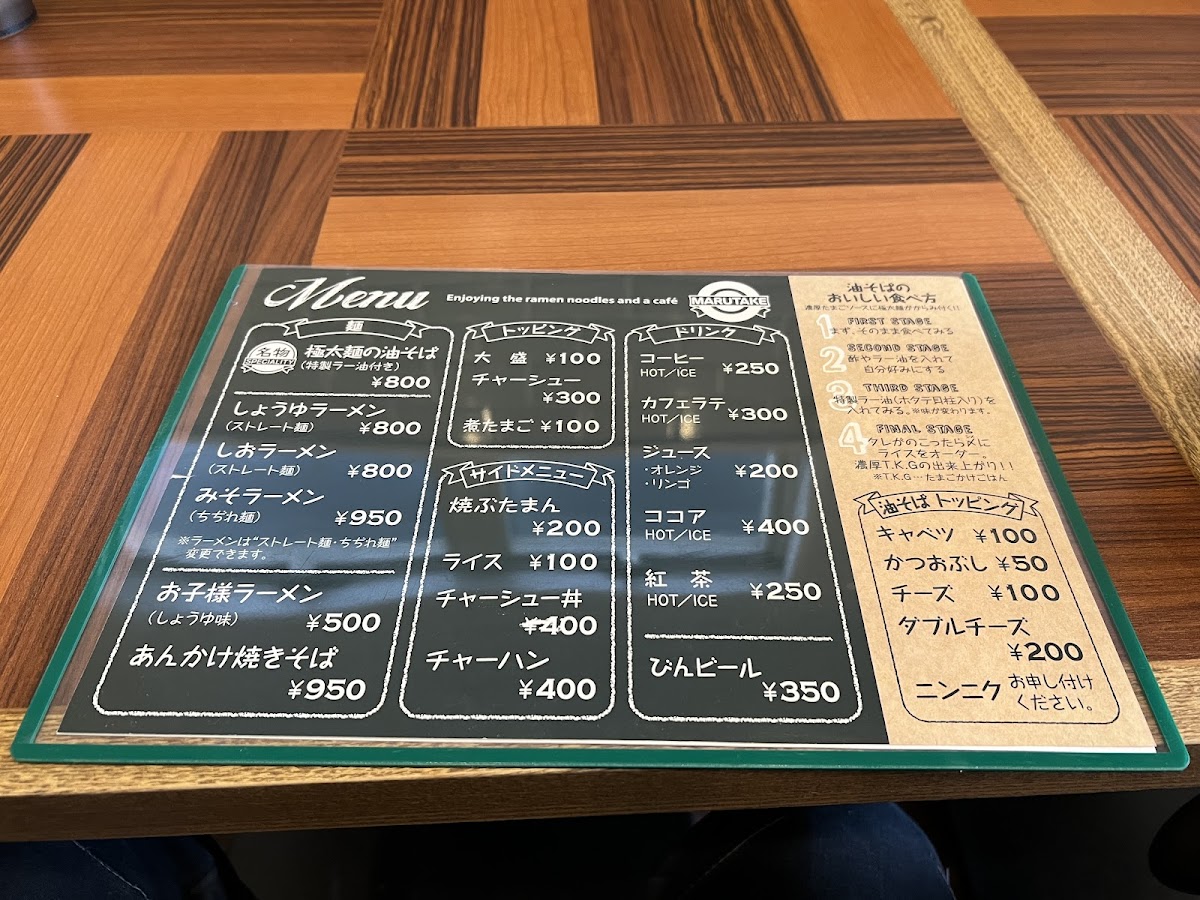 Menu
Enjoying the ramen noodles and a café
MARUTAKE
麺
名物
SPECIALITY
極太麺の油そば
(特製ラー油付き)
¥800
しょうゆラーメン
(ストレート麺) ¥800
しおラーメン
(ストレート麺) ¥800
みそラーメン
(ちぢれ麺) ¥950
※ラーメンは"ストレート麺・ちぢれ麺"
変更できます。
お子様ラーメン
(しょうゆ味) ¥500
あんかけ焼きそば
¥950
トッピング
大盛 ¥100
チャーシュー
¥300
煮たまご ¥100
サイドメニュー
焼ぶたまん
¥200
ライス ¥100
チャーシュー丼
¥400
チャーハン
¥400
ドリンク
コーヒー
HOT/ICE ¥250
カフェラテ
HOT/ICE ¥300
ジュース
・オレンジ ¥200
・リンゴ
ココア
HOT/ICE ¥400
紅茶
HOT/ICE ¥250
びんビール
¥350
油そばの
おいしい食べ方
濃厚たまごソースに極太麺がからみ付く!!
1 FIRST STAGE
まず、そのまま食べてみる
2 SECOND STAGE
酢やラー油を入れて
自分好みにする
3 THIRD STAGE
特製ラー油(ホタテ貝柱入り)を
入れてみる。※味が変わります。
4 FINAL STAGE
タレがのこったら〆に
ライスをオーダー。
濃厚T.K.Gの出来上がり!!
※T.K.G…たまごかけごはん
油そばトッピング
キャベツ ¥100
かつおぶし ¥50
チーズ ¥100
ダブルチーズ
¥200
ニンニク お申し付け
ください。